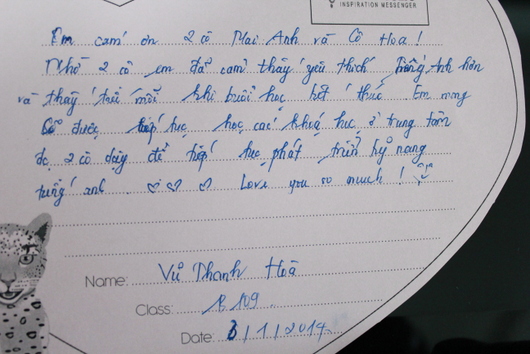 INSPIRATION MESSENGER
Em cảm ơn 2 cô Mai Anh và Cô Hoa!
Nhờ 2 cô em đã cảm thấy yêu thích tiếng Anh hơn
và thấy tiếc mỗi khi buổi học kết thúc. Em mong
được tiếp tục học các khoá học ở trung tâm
do 2 cô dạy để tiếp tục phát triển kỹ năng
tiếng anh. ♡ ♡ ♡ Love you so much!
Name: Vũ Thanh Hoà
Class: B109
Date: 3/1/2014